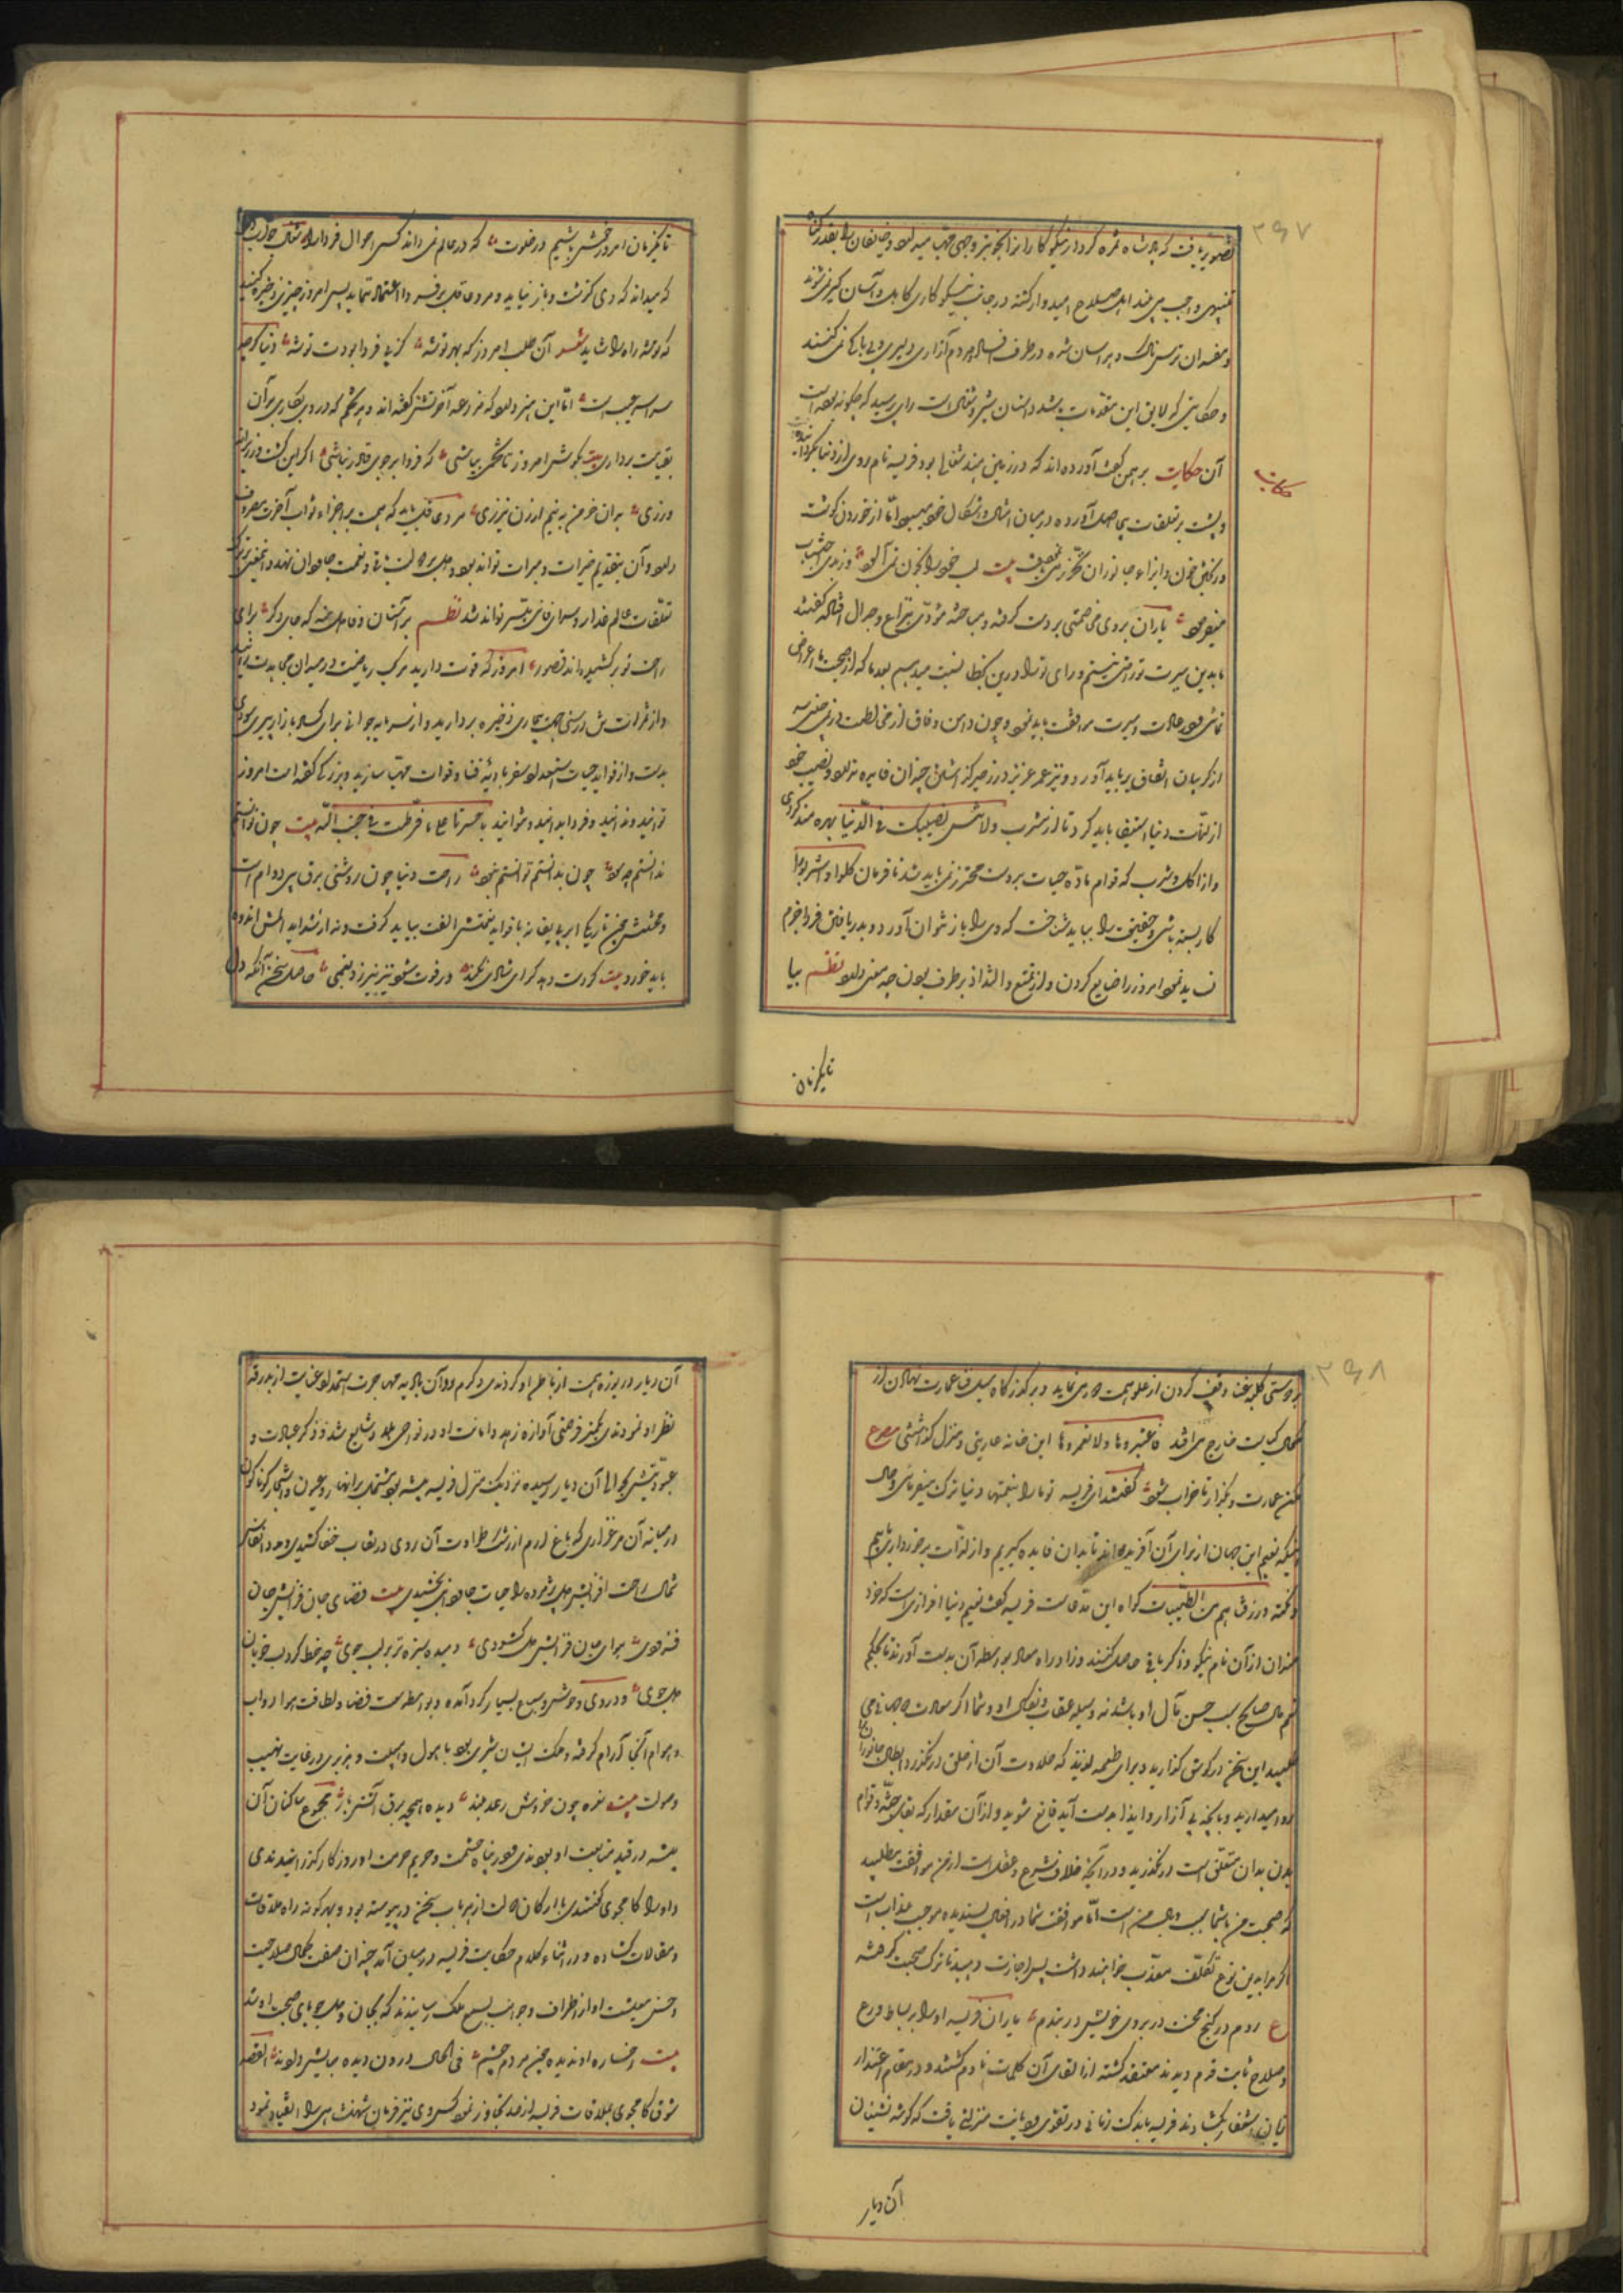 ۳۶۷
تصویر یافت که پادشاه ثمره کردار نیکوکار را از آنجو بنز وجهی مهیا میدارد و خائفان را بقدر گناه
تنبیهی واجب می‌بیند اهل صلاح امیدوار گشته در جانب نیکوکاری کاهل و آسان گیر نمی‌شوند
و مفسدان ترسناک و هراسان شده در طرف فساد و مردم آزاری دلیری و بی‌باکی نمی‌کنند
و حکایتی که لایق این مقدمات باشد داستان شیر و شغال است رای پرسید که چگونه بوده است
آن حکایت برهمن گفت آورده‌اند که در زمین هند شغالی بود فریسه نام روی از دنیا بگردانیده
حکایت
و پشت بر تعلقات بی حاصل آورده در میان امثال و اشکال خود میبود امّا از خوردن گوشت
و ریختن خون و ایذاء جانوران تحرّز می‌نمود بیت لب خود را بخون نمی‌آلود وز بدی اجتناب
میفرمود یاران بر وی مخاصمتی بر دست گرفته و مباحثه مؤدّی بنزاع و جدال افتاد گفتند
ما بدین سیرت تو راضی نیستیم و رای ترا درین بخطا نسبت میدهیم بعد ما که از صحبت ما اعراض
نمائی در عادات و سیرت موافقت باید نمود و چون دامن وفاق از مخالطت در نمی‌چینی سر
از گریبان اتفاق بر باید آورد و نیز عمر عزیز در زحیر گذاشتن چندان فایده ندارد و نصیب خود
از لذّات دنیا استیفا باید کرد تا از مشرب ولا تنس نصیبک فی الدّنیا بهره‌مند گردی
و از اکل و شرب که قوام مادّه حیات بر دوست محترز نمی‌باید شد تا فرمان کلوا و اشربوا را
کار بسته باشی و حقیقت را بباید شناخت که دی را باز نتوان آورد و بدریافتن فردا جزم
نباید نمود امروز را ضایع کردن و از تمتع و التذاذ برطرف بودن چه معنی دارد نظم بیا
تا یکزمان
تا یکزمان امروز خوش باشیم در خلوت که در عالم نمی‌داند کسی احوال فردا را شغال جواب داد
که میدانید که دی گذشت و باز نیاید و مرد عاقل بر فردا اعتماد ننماید پس امروز چیزی ذخیره کنید
که توشه راه را شاید شعر آن طلب امروز که بهر توشه کز پی فردا بودت توشه دنیا گرچه
سراسر عیب است امّا این هنر دارد که مزرعه آخرتش گفته‌اند و هر تخم که در وی بکاری بر آن
بقیامت برداری بیت بکوش امروز تا تخمی بپاشی که فردا بر جوی قادر نباشی اگر این کشت ورزی را
ورزی بدان خرمن به نیم ارزن نیرزی مرد عاقل باید که همت بر احراز ثواب آخرت مصروف
دارد و آن بتقدیم خیرات و مبرات تواند بود و دل بر دولت باقی و نعمت جاودان نهد و اینمعنی بترک
تعلقات عالم غدار و سرای فانی میسّر تواند شد نظم بر آستان وفا دل منه که جای دگر برای
راحت تو بر کشیده‌اند قصور امروز که قوت دارید مرکب ریاضت در میدان مجاهدت برانید
و از ثمرات تن‌درستی جهت بیماری ذخیره بردارید و از سرمایه جوانی برای کساد بازار پیری سودی
بدست و از فواید حیات استعداد سفر بادیه فنا و فوات مهیّا سازید و بزرگی گفته است امروز
توانید و ندانید و فردا بدانید و نتوانید یا حسرتا علی ما فرّطت فی جنب اللّه بیت چون توانستم
ندانستم چه سود چون بدانستم توانستم نبود راحت دنیا چون روشنی برق بی دوام است
و محنتش همچون تاریکی ابر بی‌بقا نه با فواید نعمتش الفت بباید گرفت و نه از شداید المش اندوه
باید خورد بیت گرت دهد گرای شادی مکند ور فوت شود نیز نیرزد بغمی حاصل سخن آنکه دل
۳۶۸
بر دوستی کلبه عنا وقف کردن از علو همت دور می‌نماید و بر گذرگاه سیل فنا عمارت نهادن از
کمال کیاست خارج می‌افتد فاعتبروها ولا تعمروها این خانه عاریتی و منزل گذاشتنی مصرع
مکن عمارت و بگذار تا خراب شود گفتند ای فریسه تو ما را بنعمتهای دنیا ترک میفرمائی و حال
آنکه نعیم این جهان از برای آن آفریده‌اند تا بدان فایده گیریم و از لذّات برخورداری یابیم
و نکته ورزقناهم من الطّیبات گواه این مدّعاست فریسه گفت نعیم دنیا افزاری است که خرد
مندان از آن نام نیکو و ذکر باقی حاصل کنند و زاد راه معاد بواسطه آن بدست آورند تا بحکم
نعم المال الصالح سبب حسن مآل او باشد نه وسیله عقاب و نکال او و شما اگر سعادت دو جهانی می
طلبید این سخن در گوش گذارید و برای طعمه لذیذ که حلاوت آن از حلق درنگذرد ابطال جانوران
روا مدارید و بآنچه بی آزار و ایذا بدست آید قانع شوید و از آن مقدار که بقای جثّه و قوام
بدن بدان متعلّق است درنگذرید و در آنچه خلاف شرع و عقل است از من موافقت مطلبید
که صحبت من با شما سبب وبال من است امّا موافقت شما در افعال پسندیده موجب عذاب است
اگر مرا بدین نوع تکلّف معذّب خواهید داشت پس اجازت دهید تا ترک صحبت گرفته
ع روم در کنج محنت در بروی خویش در بندم یاران فریسه او را بر بساط ورع
و صلاح ثابت قدم دیدند معتقد گشته از القای آن کلمات نادم گشتند و در مقام اعتذار
زبان استغفار بگشادند فریسه باندک زمانی در تقوی و دیانت منزلتی یافت که گوشه نشینان
آن دیار
آن دیار دریوزه همت از باطن او کردندی و گرم روان بادیه مجاهدت استمداد عنایت از بدرقه
نظر او نمودندی بکمتر فرصتی آوازه زهد و امانت او در نواحی بلاد شایع شد و ذکر عبادت و
عبودیّتش بحوالی آن دیار رسیده نزدیک منزل فریسه بیشه بود مشتمل بر انهار و عیون و اشجار گوناگون
در میانه آن مرغزاری که باغ ارم از رشک طراوت آن روی در نقاب خفا کشیدی و مدد انفاس
شمال راحت افزایش دل پژمرده را حیات جاودانی بخشیدی بیت فضای جان فزایش جان
فزودی هوای جان فزایش دل گشودی دمیده سبزه تر بر لب جوی چو خط گرد لب خوبان
دلجوی و در وی وحوش و سباع بسیار گرد آمده و بواسطه وسعت فضا و لطافت هوا دواب
و هوام آنجا آرام گرفته و ملک ایشان شیری بود با هول و هیبت و هژبری در غایت نهیب
وصولت بیت نعره چون خروش رعد بلند دیده همچو برق آتش بار مجموع ساکنان آن
بیشه در قید متابعت او بودندی و در پناه حشمت و حریم حرمت او روزگار گذرانیدندی
و او را کامجوی گفتندی با ارکان دولت از هر باب سخن در پیوسته بود و بهر گونه راه مقدمات
و مقالات گشاده و در اثناء کلام حکایت فریسه در میان آمد چندان صفت کمال صلاحیت
و حسن معیشت او از اطراف و جوانب بسمع ملک رسانیدند که بجان و دل جویای صحبت او شد
بیت رخساره او ندیده چشم مردم چشم فی الحال درون دیده جایش دادند القصه
شوق کامجوی بملاقات فریسه از حد تجاوز نمود کس و وی نیز فرمان شهنشاهی را انقیاد نمود